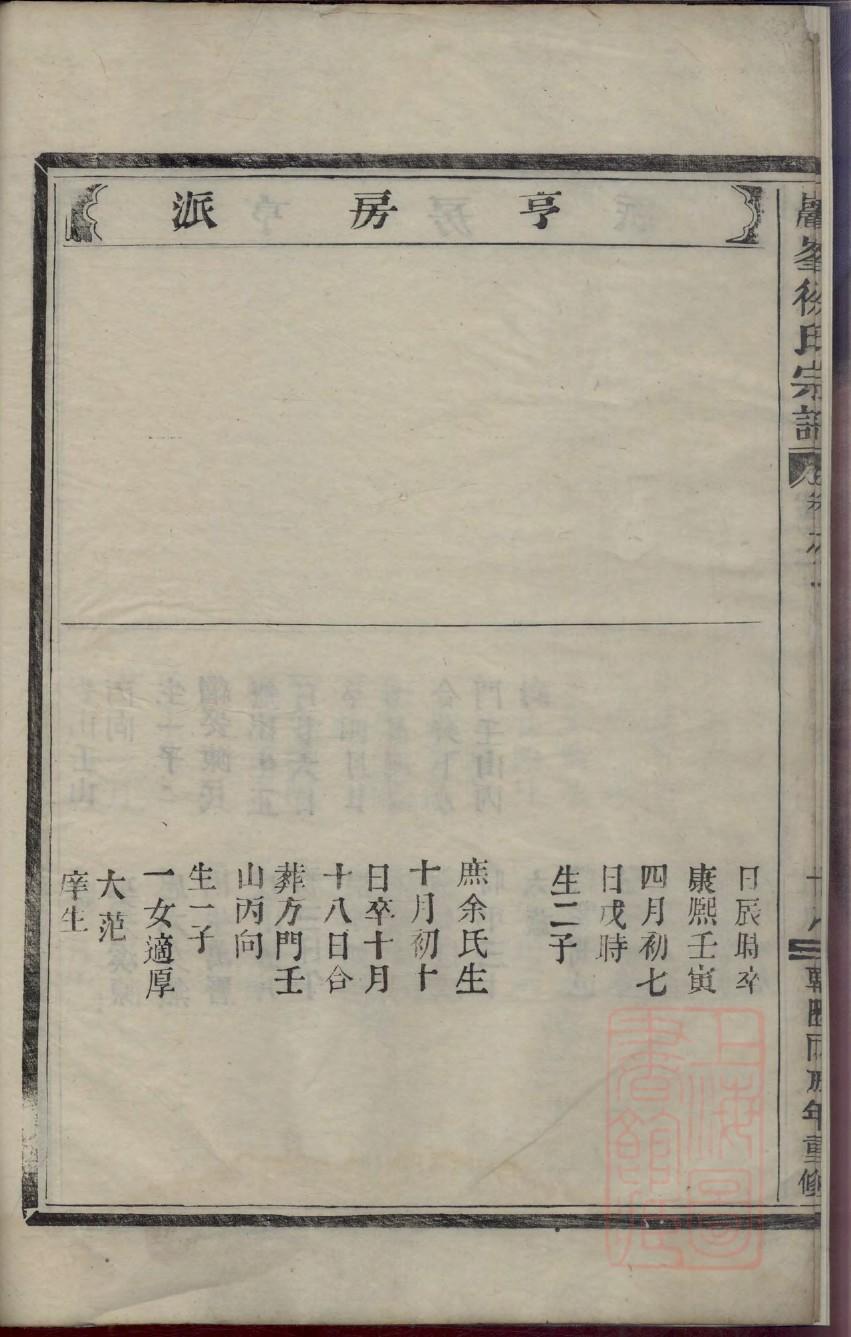 亨房派
峯徐氏宗譜
年重修
日辰時卒
康熙壬寅
四月初七
日戌時
生二子
庶余氏生
十月初十
日卒十月
十八日合
葬方門壬
山丙向
生一子
一女適厚
大范
庠生
上海圖書館藏